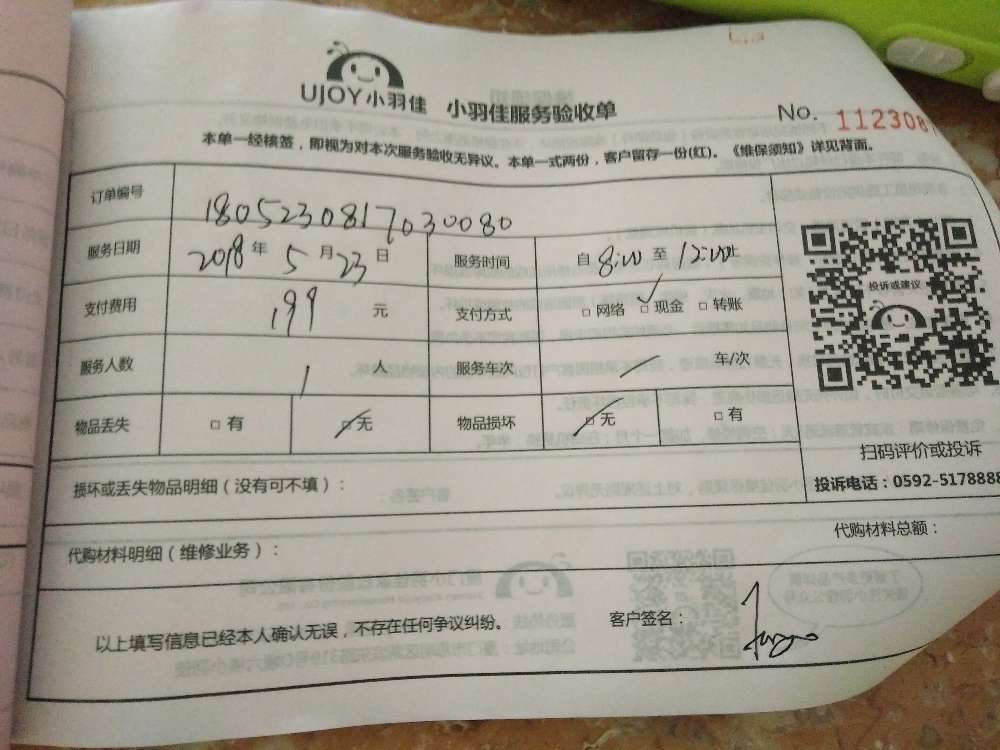 UJOY小羽佳 小羽佳服务验收单
No. 112308
本单一经核签，即视为对本次服务验收无异议。本单一式两份，客户留存一份(红)。《维保须知》详见背面。
订单编号 1805230817030080
服务日期 2018年5月23日 服务时间 自8:00至12:00止
支付费用 199元 支付方式 □网络 ✓□现金 □转账
服务人数 1人 服务车次 / 车/次
物品丢失 □有 □无 物品损坏 □无 □有
投诉或建议
扫码评价或投诉
投诉电话：0592-5178888
损坏或丢失物品明细（没有可不填）：
代购材料明细（维修业务）： 代购材料总额：
以上填写信息已经本人确认无误，不存在任何争议纠纷。 客户签名：